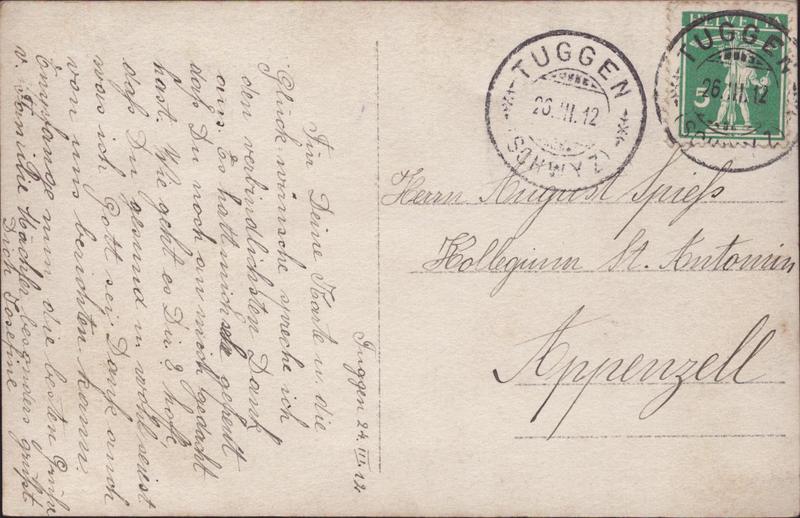 Tuggen 24. III. 12
Für Deine Karte u. die
Glückwünsche spreche ich
den verbindlichsten Dank
aus. Es hatt mich gefreut
daß Du noch an mich gedacht
hast. Wie geht es Dir? hoffe
daß Du gesund u. wohl seist
was ich Gott sei Dank auch
von uns berichten kann.
Empfange nun die besten Grüße
v. Familie Mächler besonders grüßt
Dich Josefine
TUGGEN
26. III. 12
(SCHWYZ)
HELVETIA
5
TUGGEN
26. III. 12
(SCHWYZ)
Herrn August Spieß
Kollegium St. Antonin
Appenzell